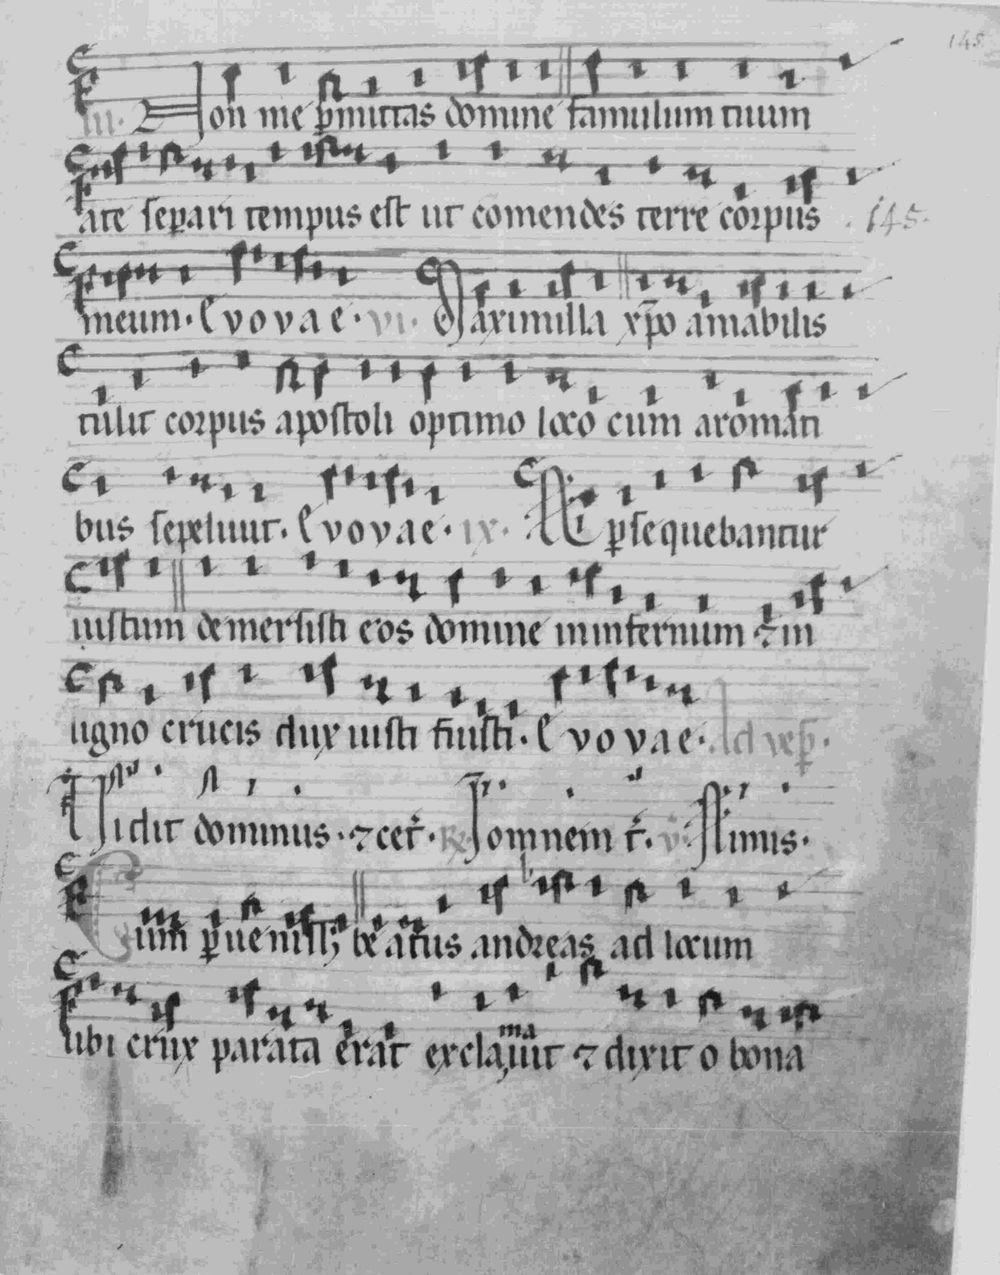 145
iii. Non me ꝑmittas domine famulum tuum
a te seꝑari tempus est ut comendes terre corpus . 145.
meum. Evovae. vi. Maximilla xp̄o amabilis
tulit corpus apostoli optimo loco cum aromati
bus sepeliuit. Evovae. ix. ꝑsequebantur
iustum demersisti eos domine in infernum ⁊ in
ligno crucis dux iusti fuisti. Evovae. Ad vesꝑ.
Vidit dominus. ⁊ cet̄. ℟ In omnem t̄. ℣ Nimis.
Cum ꝑuenisset beatus andreas ad locum
ubi crux parata erat exclamauit ⁊ dixit o bona